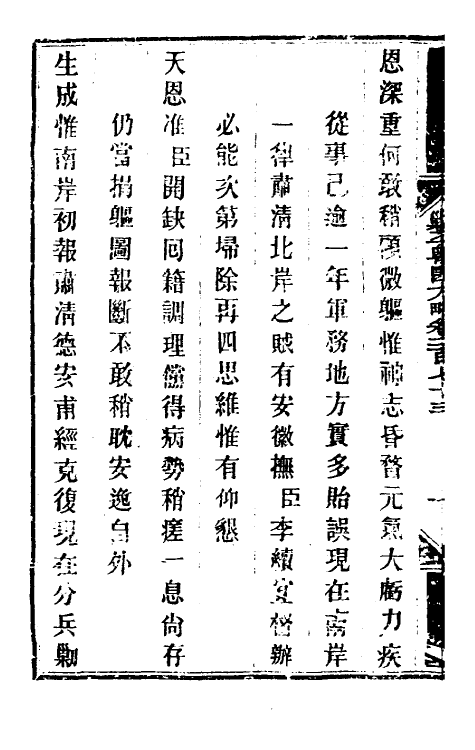 恩深重何敢稍顧微軀惟神志昏瞀元氣大虧力疾
從事已逾一年軍務地方實多貽誤現在南岸
一律肅清北岸之賊有安徽撫臣李續宜督辦
必能次第埽除再四思維惟有仰懇
天恩准臣開缺囘籍調理儻得病勢稍瘥一息尙存
仍當捐軀圖報斷不敢稍耽安逸自外
生成惟南岸初報肅清德安甫經克復現在分兵勦